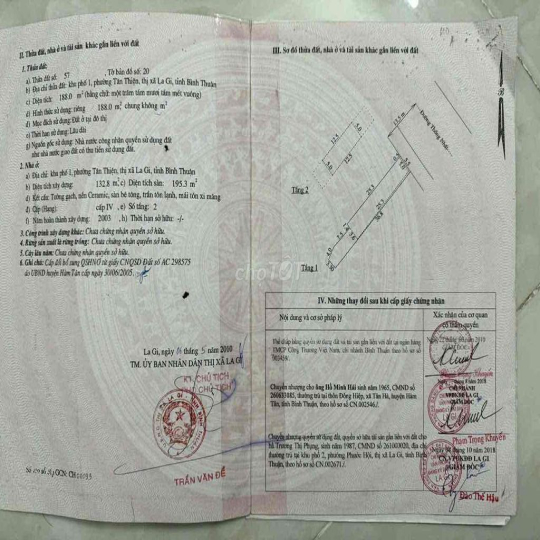 II. Thửa đất, nhà ở và tài sản khác gắn liền với đất
1. Thửa đất:
a) Thửa đất số: 57 , Tờ bản đồ số: 20
b) Địa chỉ thửa đất: khu phố 1, phường Tân Thiện, thị xã La Gi, tỉnh Bình Thuận
c) Diện tích: 188.0 m² (bằng chữ: một trăm tám mươi tám mét vuông)
d) Hình thức sử dụng: riêng 188.0 m², chung không m²
đ) Mục đích sử dụng: Đất ở tại đô thị
e) Thời hạn sử dụng: Lâu dài
g) Nguồn gốc sử dụng: Nhà nước công nhận quyền sử dụng đất
như nhà nước giao đất có thu tiền sử dụng đất.
2. Nhà ở:
a) Địa chỉ: khu phố 1, phường Tân Thiện, thị xã La Gi, tỉnh Bình Thuận
b) Diện tích xây dựng: 132.8 m², c) Diện tích sàn: 195.3 m²
d) Kết cấu: Tường gạch, nền Ceramic, sàn bê tông, trần tôn lạnh, mái tôn xi măng
đ) Cấp (Hạng): cấp IV , e) Số tầng: 2
f) Năm hoàn thành xây dựng: 2003 , h) Thời hạn sở hữu: -/-
3. Công trình xây dựng khác: Chưa chứng nhận quyền sở hữu.
4. Rừng sản xuất là rừng trồng: Chưa chứng nhận quyền sở hữu.
5. Cây lâu năm: Chưa chứng nhận quyền sở hữu.
6. Ghi chú: Cấp đổi bổ sung QSHNO từ giấy CNQSD Đất số AC 298575
do UBND huyện Hàm Tân cấp ngày 30/06/2005.
La Gi, ngày 5 2010
TM. ỦY BAN NHÂN DÂN THỊ XÃ LA GI
KT. CHỦ TỊCH
PHÓ CHỦ TỊCH
TRẦN VĂN ĐỂ
III. Sơ đồ thửa đất, nhà ở và tài sản khác gắn liền với đất
Đường Thống Nhất
Tầng 2
Tầng 1
IV. Những thay đổi sau khi cấp giấy chứng nhận
Nội dung và cơ sở pháp lý
Xác nhận của cơ quan
có thẩm quyền
Thế chấp bằng quyền sử dụng đất và tài sản gắn liền với đất tại ngân hàng
TMCP Công Thương Việt Nam, chi nhánh Bình Thuận theo hồ sơ
Chuyển nhượng cho ông Hồ Minh Hải sinh năm 1965, CMND số
260633085, thường trú tại thôn Đông Hiệp, xã Tân Hà, huyện Hàm Tân,
tỉnh Bình Thuận, theo hồ sơ số CN.002546/.
CHI NHÁNH
VPĐKĐĐ LA GI
GIÁM ĐỐC
Chuyển nhượng quyền sử dụng đất, quyền sở hữu tài sản gắn liền với đất cho
bà Trương Thị Phụng, sinh năm 1987, CMND số 261003020, địa chỉ
thường trú tại khu phố 2, phường Phước Hội, thị xã La Gi, tỉnh Bình
Thuận, theo hồ sơ số CN.002671/.
Phạm Trọng Khuyến
10 - 2018
CN.VPĐKĐĐ LA GI
GIÁM ĐỐC
Đào Thế Hậu